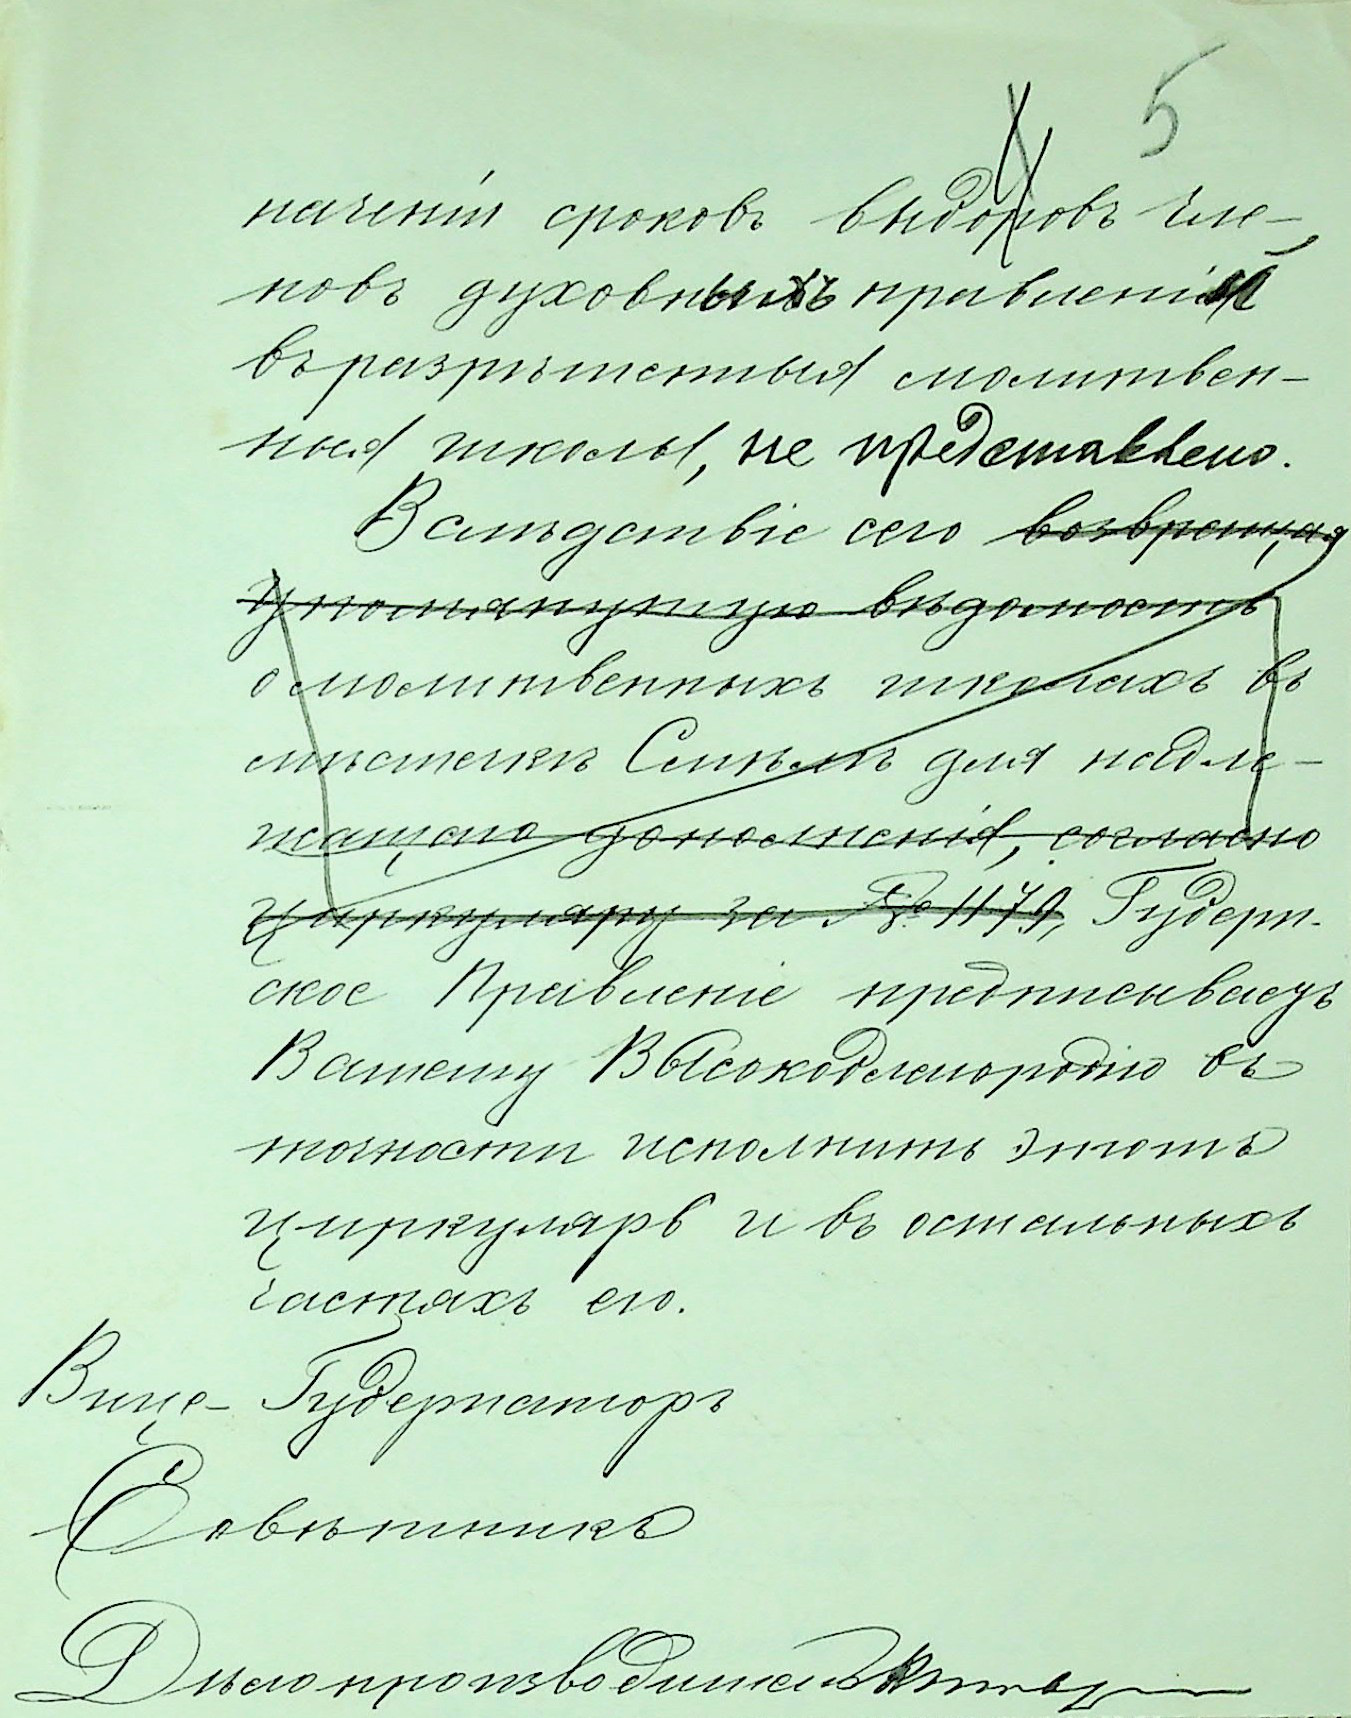 5
наченіи сроковъ выборовъ чле-
новъ духовныхъ правленій
въ разрѣшенныя молитвен-
ныя школы, не представлено.
Вслѣдствіе сего возвращая
упомянутую вѣдомость
о молитвенныхъ школахъ въ
мѣстечкѣ Смѣлѣ для надле-
жащаго дополненія, согласно
циркуляру за № 1179, Губерн-
ское Правленіе предписываетъ
Вашему Высокоблагородію въ
точности исполнить этотъ
циркуляръ и въ остальныхъ
частяхъ его.
Вице-Губернаторъ
Совѣтникъ
Дѣлопроизводитель